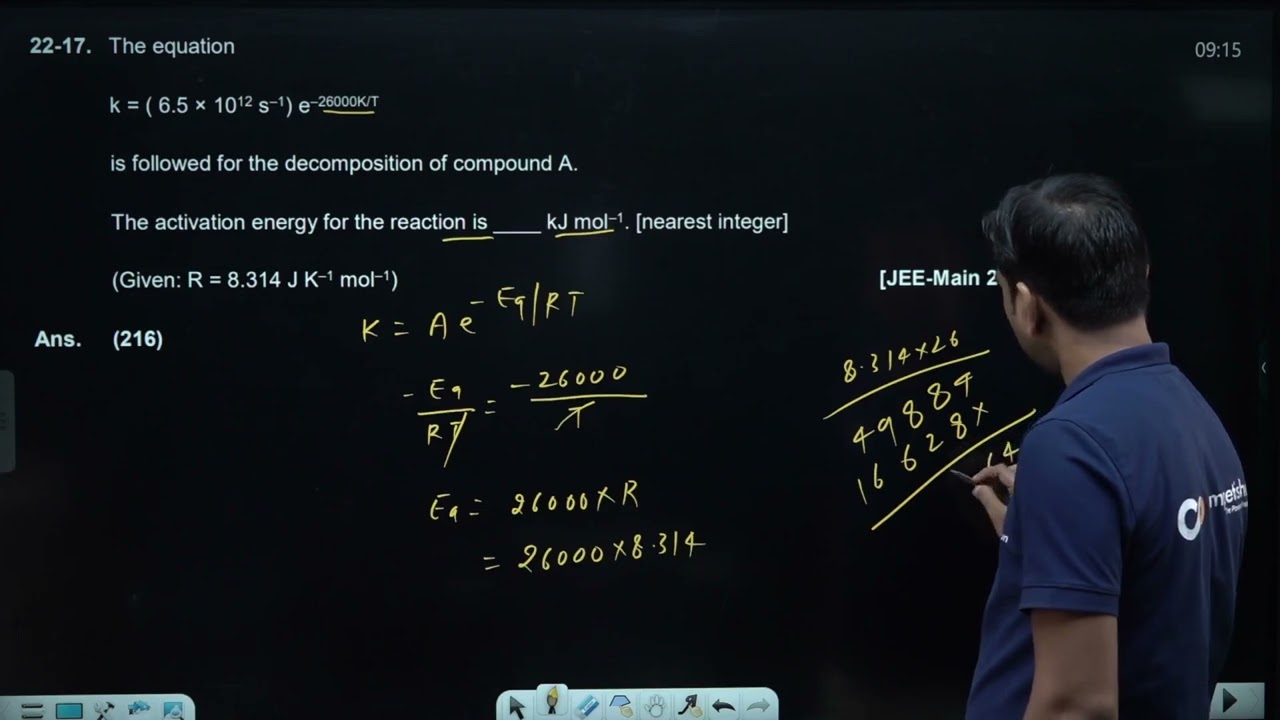 22-17. The equation
09:15
k = ( 6.5 × 10¹² s⁻¹) e⁻²⁶⁰⁰⁰ᴷ/ᵀ
is followed for the decomposition of compound A.
The activation energy for the reaction is ____ kJ mol⁻¹. [nearest integer]
(Given: R = 8.314 J K⁻¹ mol⁻¹)
[JEE-Main 2
Ans. (216)
K = A e^-Ea/RT
-Ea/RT = -26000/T
Ea = 26000 × R
= 26000 × 8.314
8.314 × 26
49884
16628×
64